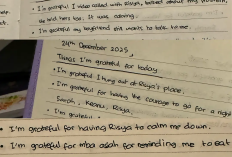 • I'm grateful I video called with Risya, talked about my
• I'm grateful my boyfriend still wants to talk to me.
24th December 2025,
Things I'm grateful for today
• I'm grateful I hung out at Risya's place.
• I'm grateful for having the courage to go for a
Sarah, Keanu, Risya.
• I'm grateful
• I'm grateful for having Risya to calm me down.
• I'm grateful for mba asah for reminding me to eat